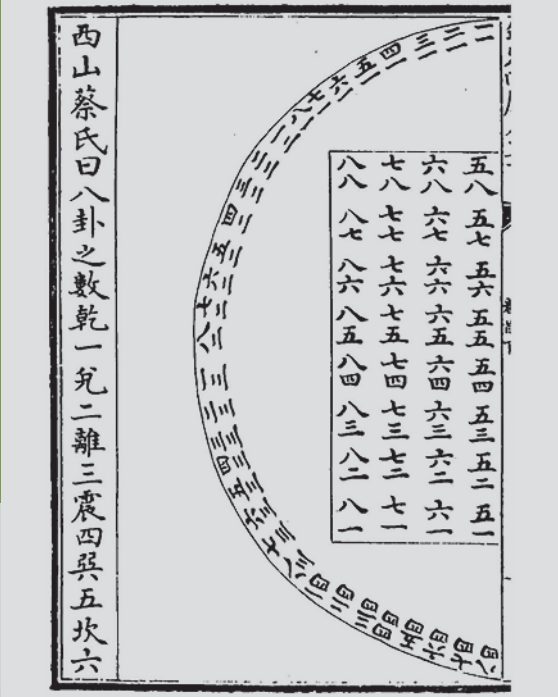 五八 五七 五六 五五 五四 五三 五二 五一
六八 六七 六六 六五 六四 六三 六二 六一
七八 七七 七六 七五 七四 七三 七二 七一
八八 八七 八六 八五 八四 八三 八二 八一
一一 二一 三一 四一 五一 六一 七一 八一
一二 二二 三二 四二 五二 六二 七二 八二
一三 二三 三三 四三 五三 六三 七三 八三
一四 二四 三四 四四 五四 六四 七四 八四
西山蔡氏曰八卦之數乾一兌二離三震四巽五坎六